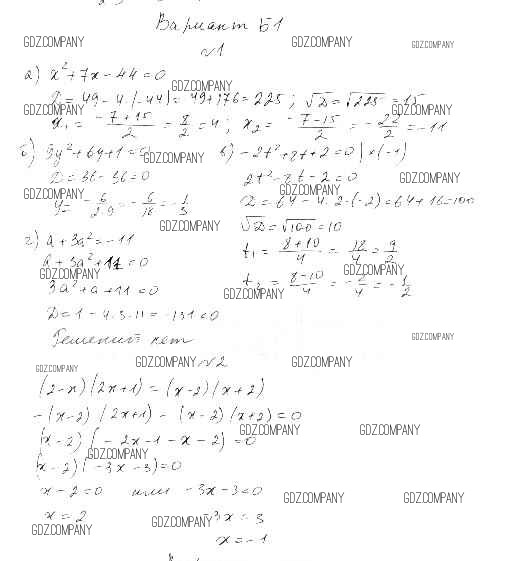 Вариант Б1
GDZ.COMPANY GDZ.COMPANY GDZ.COMPANY
№1
а) x² + 7x - 44 = 0
GDZ.COMPANY
D = 49 - 4·(-44) = 49 + 176 = 225; √D = √225 = 15
GDZ.COMPANY GDZ.COMPANY
x₁ = (-7+15)/2 = 8/2 = 4; x₂ = (-7-15)/2 = -22/2 = -11
б) 9y² + 6y + 1 = 0
GDZ.COMPANY
D = 36 - 36 = 0
GDZ.COMPANY
y = -6/(2·9) = -6/18 = -1/3
в) -2t² + 8t + 2 = 0 | ×(-1)
GDZ.COMPANY
2t² - 8t - 2 = 0
GDZ.COMPANY
D = 64 - 4·2·(-2) = 64 + 16 = 100
GDZ.COMPANY
√D = √100 = 10
t₁ = (8+10)/4 = 18/4 = 9/2
GDZ.COMPANY
t₂ = (8-10)/4 = -2/4 = -1/2
GDZ.COMPANY
г) a + 3a² = -11
a + 3a² + 11 = 0
GDZ.COMPANY
3a² + a + 11 = 0
D = 1 - 4·3·11 = -131 < 0
Решений нет
GDZ.COMPANY
GDZ.COMPANY GDZ.COMPANY №2 GDZ.COMPANY
(2-x)(2x+1) = (x-2)(x+2)
-(x-2)(2x+1) - (x-2)(x+2) = 0
GDZ.COMPANY GDZ.COMPANY
(x-2)(-2x-1-x-2) = 0
GDZ.COMPANY
(x-2)(-3x-3) = 0
x-2=0 или -3x-3=0
GDZ.COMPANY GDZ.COMPANY
x = 2 -3x = 3
GDZ.COMPANY GDZ.COMPANY
x = -1